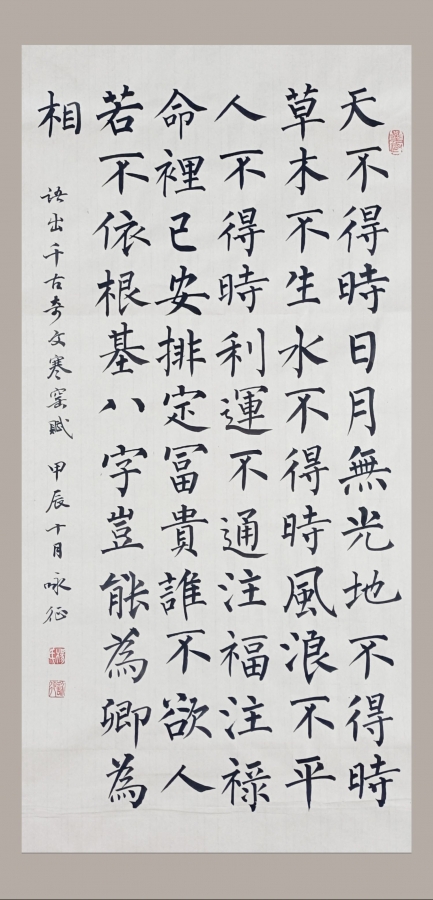 天不得時日月無光地不得時
草木不生水不得時風浪不平
人不得時利運不通注福注祿
命裡已安排定冨貴誰不欲人
若不依根基八字豈能為卿為
相
语出千古奇文寒窑赋 甲辰十月 咏征